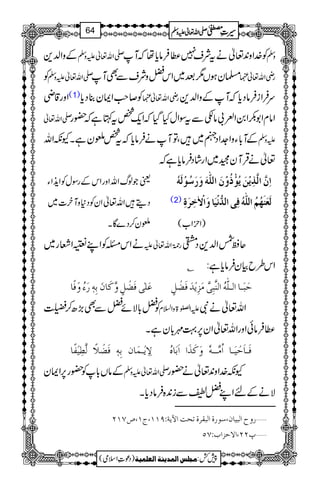 سیرتِ مصطفیٰ صلی اللہ تعالیٰ علیہ وسلم 64
وسلم کو خداوند تعالیٰ نے یہ شرف نہیں عطا فرمایا تھا کہ آپ صلی اللہ تعالیٰ علیہ وسلم کے والدین
رضی اللہ تعالیٰ عنہما مسلمان ہوں مگر بعد میں اس فضل و شرف سے بھی آپ صلی اللہ تعالیٰ علیہ وسلم کو
سرفراز فرما دیا کہ آپ کے والدین رضی اللہ تعالیٰ عنہما کو صاحب ایمان بنا دیا (1) اور قاضی
امام ابوبکر ابن العربی مالکی سے یہ سوال کیا گیا کہ ایک شخص یہ کہتا ہے کہ حضور صلی اللہ تعالیٰ
علیہ وسلم کے آباء و اجداد جہنم میں ہیں، تو آپ نے فرمایا کہ یہ شخص ملعون ہے۔ کیونکہ اللہ
تعالیٰ نے قرآن مجید میں ارشاد فرمایا ہے کہ
اِنَّ الَّذِيْنَ يُؤْذُوْنَ اللّٰهَ وَرَسُوْلَهٗ لَعَنَهُمُ اللّٰهُ فِى الدُّنْيَا وَالْاٰخِرَةِ (2) (احزاب)
یعنی جو لوگ اللہ اور اس کے رسول کو ایذاء دیتے ہیں اللہ تعالیٰ ان کو دنیا و آخرت میں ملعون کر دے گا۔
حافظ شمس الدین دمشقی رحمۃ اللہ تعالیٰ علیہ نے اس مسئلہ کو اپنے نعتیہ اشعار میں
اس طرح بیان فرمایا ہے:
حَبَا اللّٰهُ النَّبِيَّ مَزِيْدَ فَضْلٍ عَلٰى فَضْلٍ وَّكَانَ بِهٖ رَءُوْفًا
اللہ تعالیٰ نے نبی علیہ الصلوٰۃ والسلام کو فضل بالائے فضل سے بھی بڑھ کر فضیلت
عطا فرمائی اور اللہ تعالیٰ ان پر بہت مہربان ہے۔
فَاَحْيَا اُمَّهٗ وَكَذَا اَبَاهُ لِاِيْمَانٍ بِهٖ فَضْلًا لَّطِيْفًا
کیونکہ خداوند تعالیٰ نے حضور صلی اللہ تعالیٰ علیہ وسلم کے ماں باپ کو حضور پر ایمان
لانے کے لئے اپنے فضل لطیف سے زندہ فرما دیا۔
روح البیان، سورة البقرة تحت الآية: ۱۱۹، ج۱، ص۲۱۷
پ۲۲، الاحزاب: ۵۷
پیش کش: مجلس المدينة العلمية (دعوتِ اسلامی)